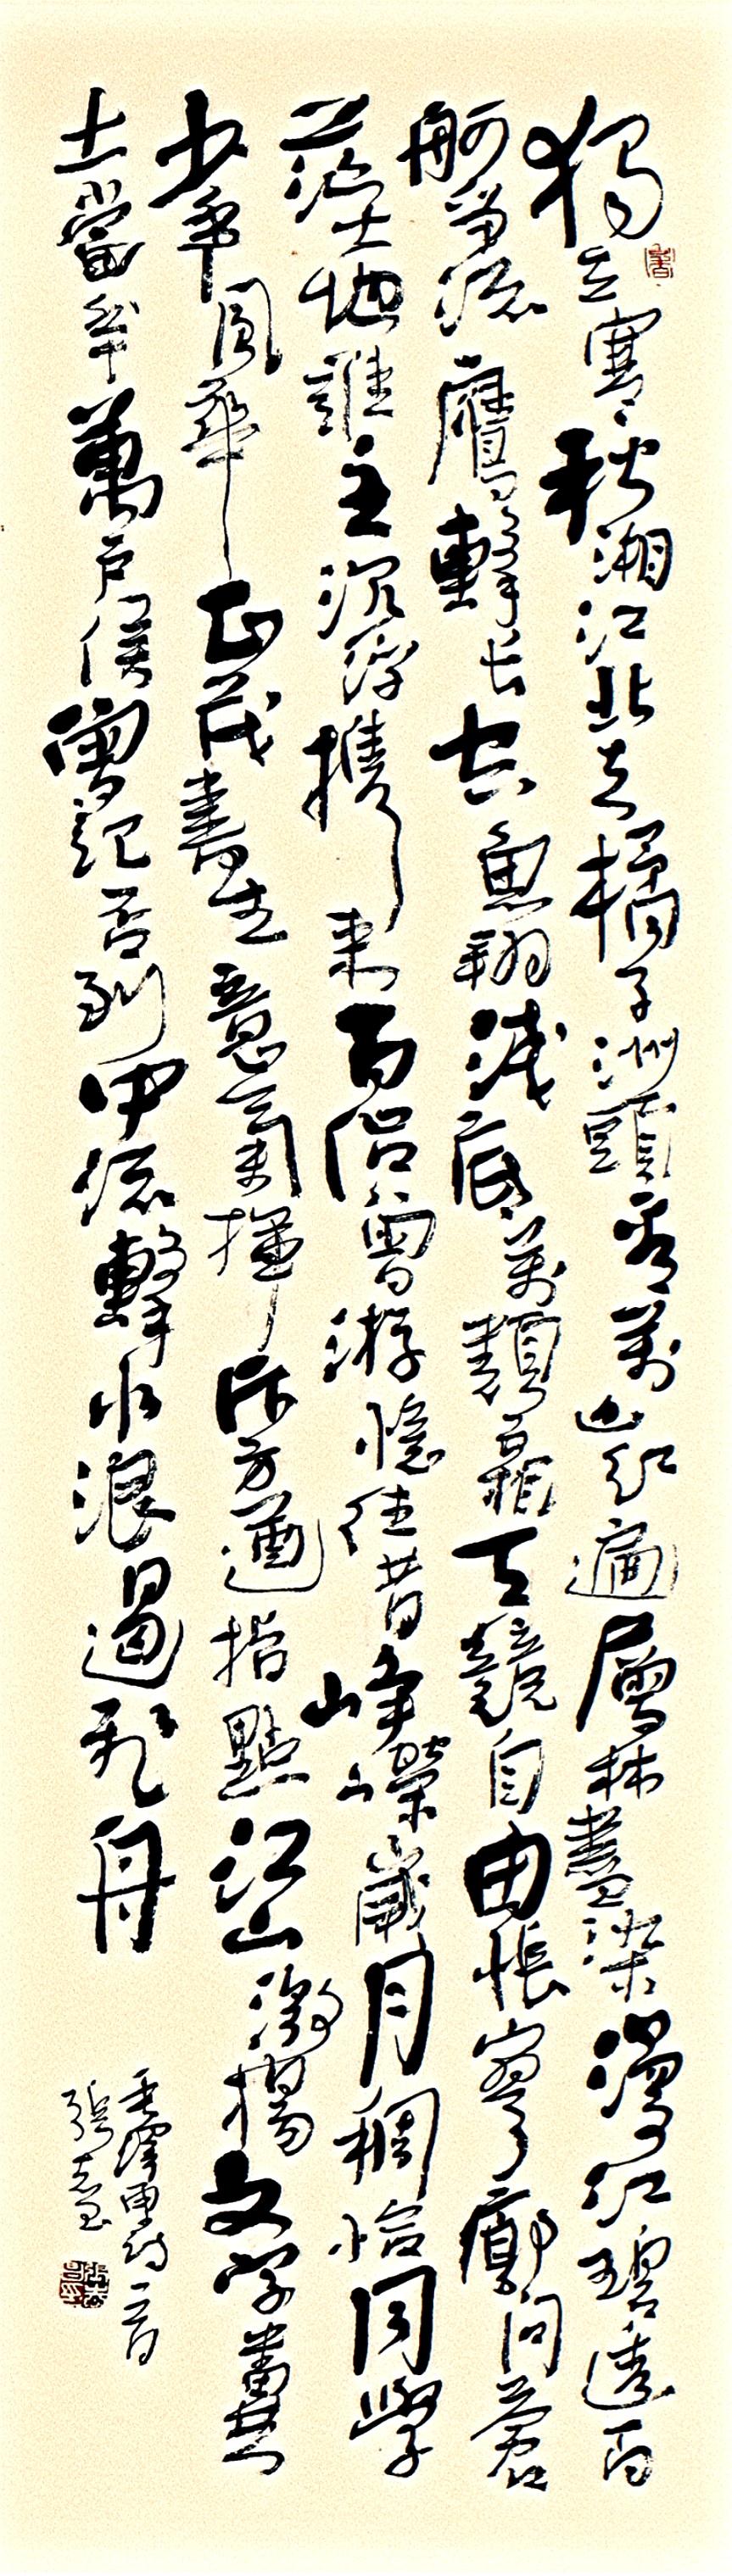 獨立寒秋湘江北去橘子洲頭看萬山紅遍層林盡染漫江碧透百
舸爭流鷹擊長空魚翔淺底萬類霜天競自由悵寥廓問蒼
茫大地誰主沉浮攜來百侶曾游憶往昔崢嶸歲月稠恰同學
少年風華正茂書生意氣揮斥方遒指點江山激揚文字糞
土當年萬戶侯曾記否到中流擊水浪遏飛舟
毛澤東詩一首
張